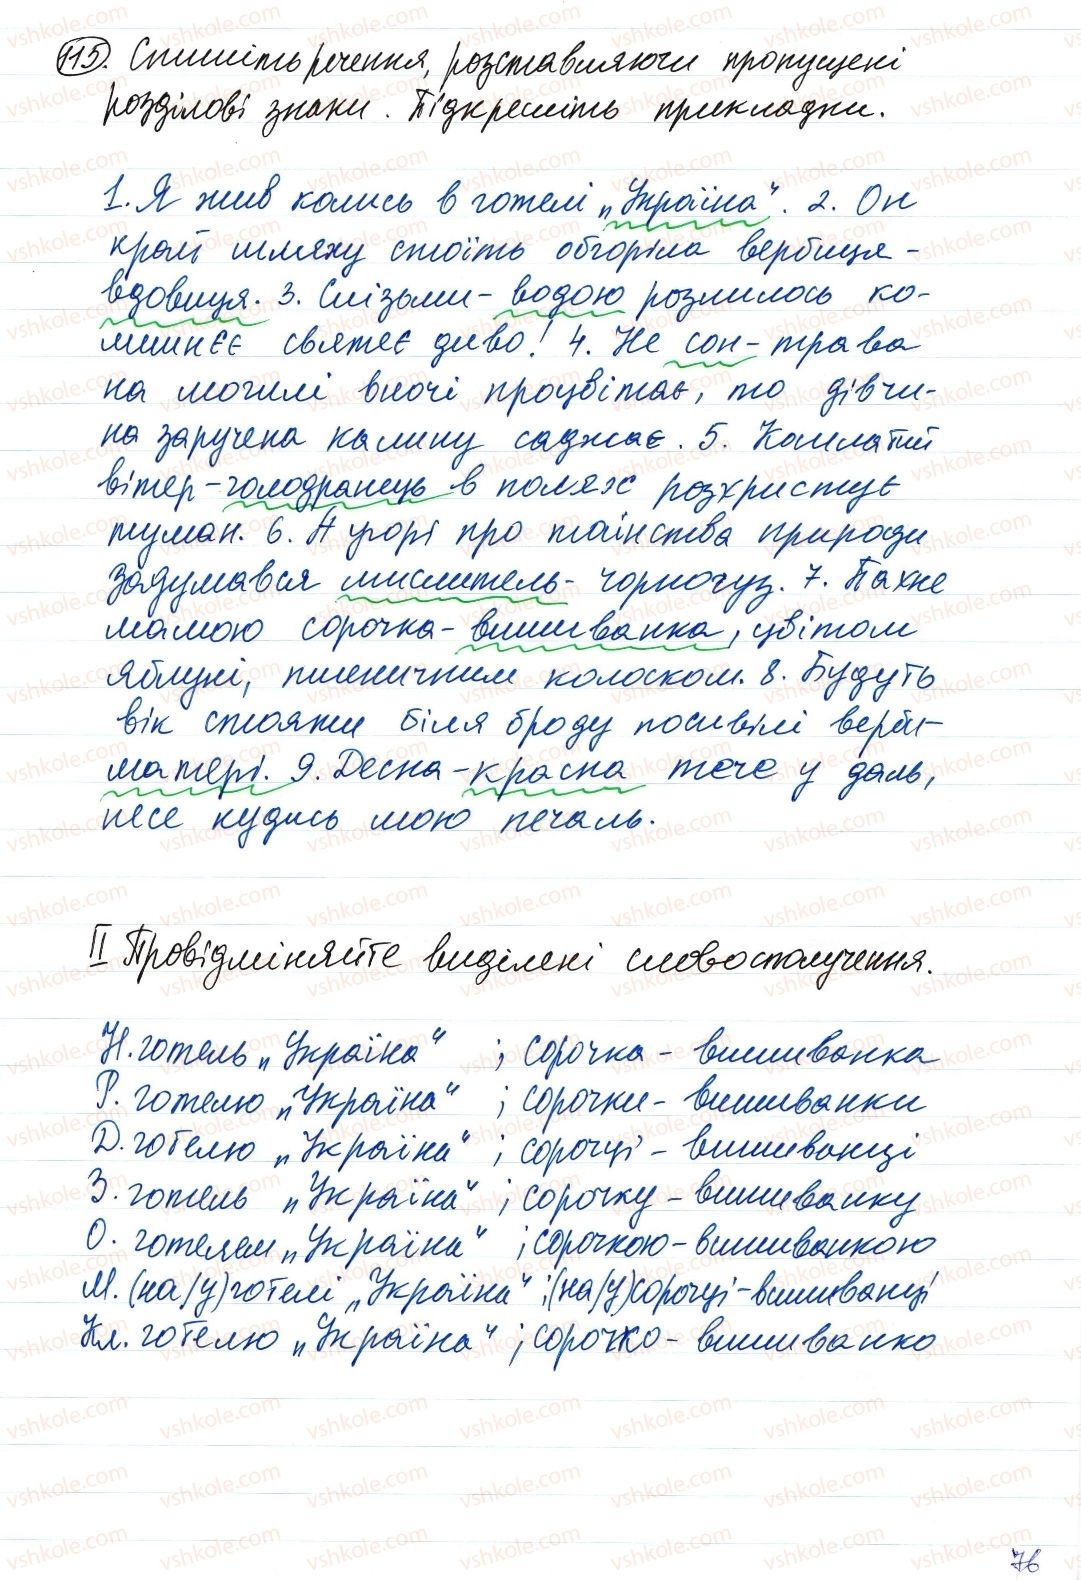 115. Спишіть речення, розставляючи пропущені
розділові знаки. Підкресліть прикладки.
1. Я жив колись в готелі „Україна“. 2. Он
край шляху стоїть обгоріла вербиця-
вдовиця. 3. Слізьми-водою розлилось ко-
лишнєє святеє диво! 4. Не сон-трава
на могилі вночі процвітає, то дівчи-
на заручена калину саджає. 5. Кошлатий
вітер-голодранець в полях розхристує
туман. 6. А угорі про таїнства природи
задумався мислитель-чорногуз. 7. Пахне
мамою сорочка-вишиванка, цвітом
яблуні, пшеничним колоском. 8. Будуть
вік стояти біля броду посивілі верби-
матері. 9. Десна-красна тече у даль,
несе кудись мою печаль.
II Провідміняйте виділені словосполучення.
Н. готель „Україна“ ; сорочка-вишиванка
Р. готелю „Україна“ ; сорочки-вишиванки
Д. готелю „Україна“ ; сорочці-вишиванці
З. готель „Україна“ ; сорочку-вишиванку
О. готелем „Україна“ ; сорочкою-вишиванкою
М. (на/у) готелі „Україна“ ; (на/у) сорочці-вишиванці
Кл. готелю „Україна“ ; сорочко-вишиванко
76